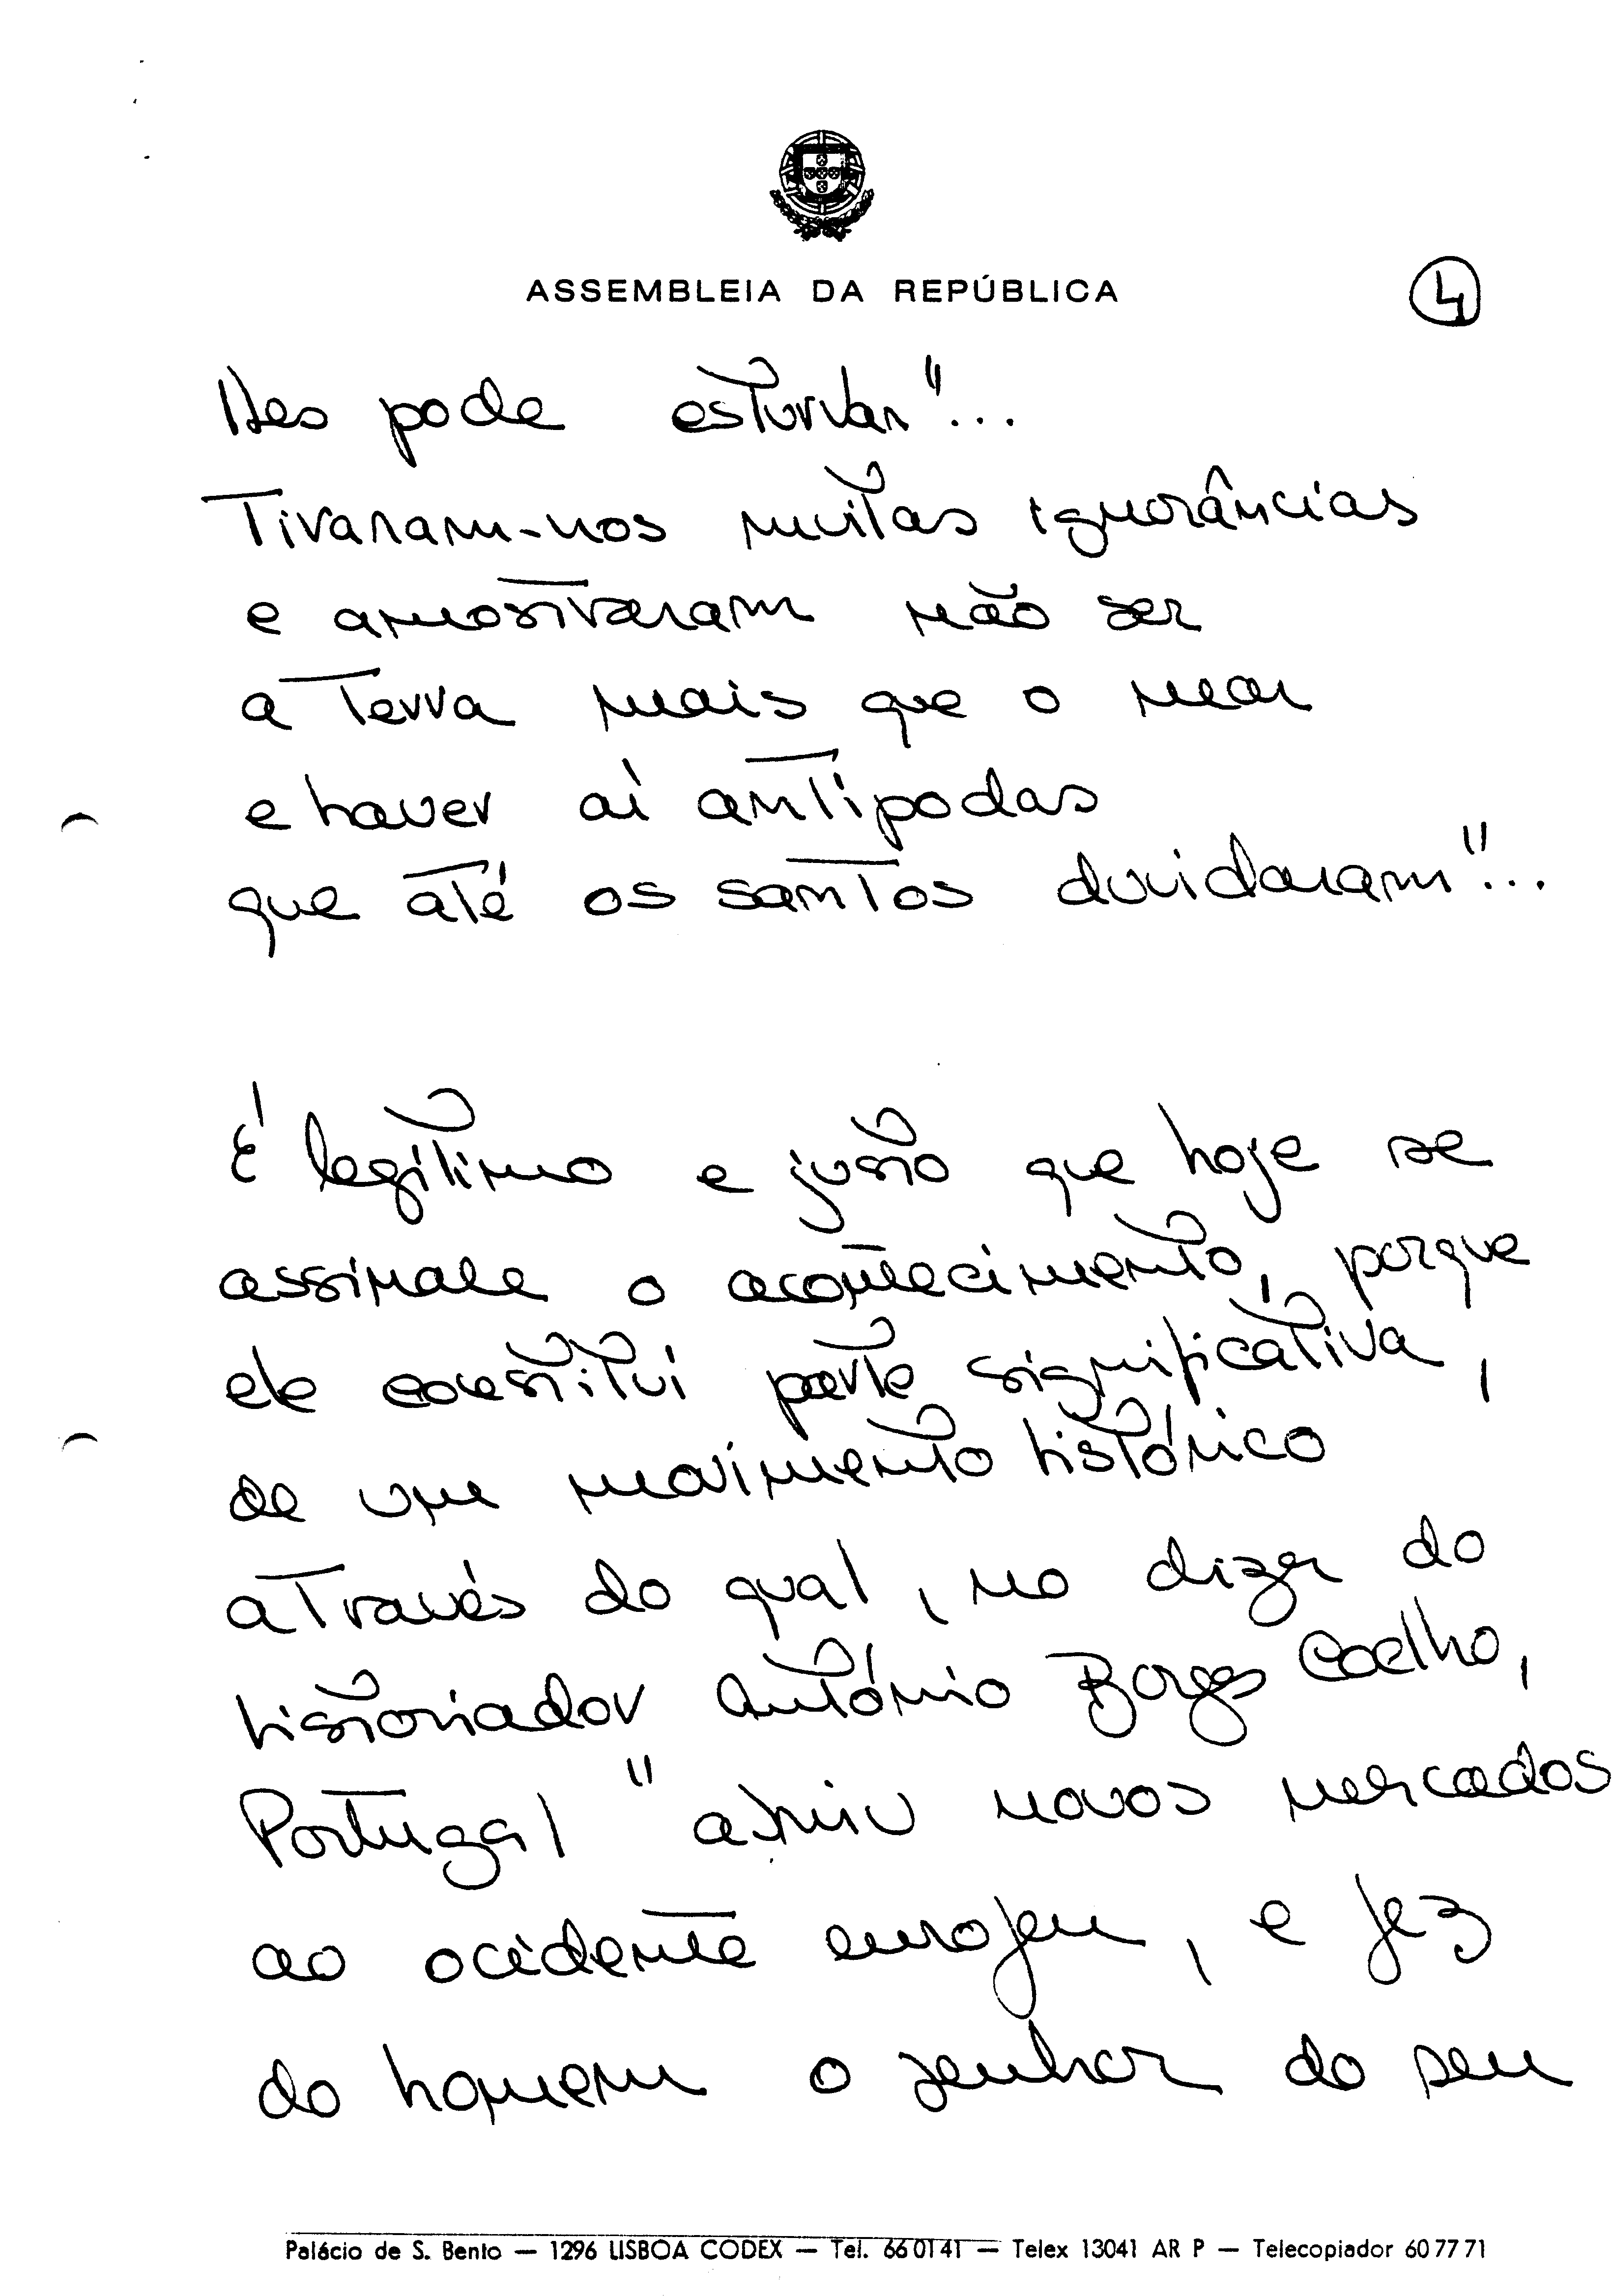 ASSEMBLEIA DA REPÚBLICA
4
lhes pode estorvar"...
Tiraram-nos muitas ignorâncias
e amostraram não ser
a Terra mais que o mar
e haver aí antípodas
que até os santos duvidaram"...
É legítimo e justo que hoje se
assinale o acontecimento, porque
ele constitui parte significativa,
de um movimento histórico
através do qual, no dizer do
historiador António Borges Coelho,
Portugal "abriu novos mercados
ao ocidente europeu, e fez
do homem o senhor do seu
Palácio de S. Bento — 1296 LISBOA CODEX — Tel. 66 01 41 — Telex 13041 AR P — Telecopiador 60 77 71